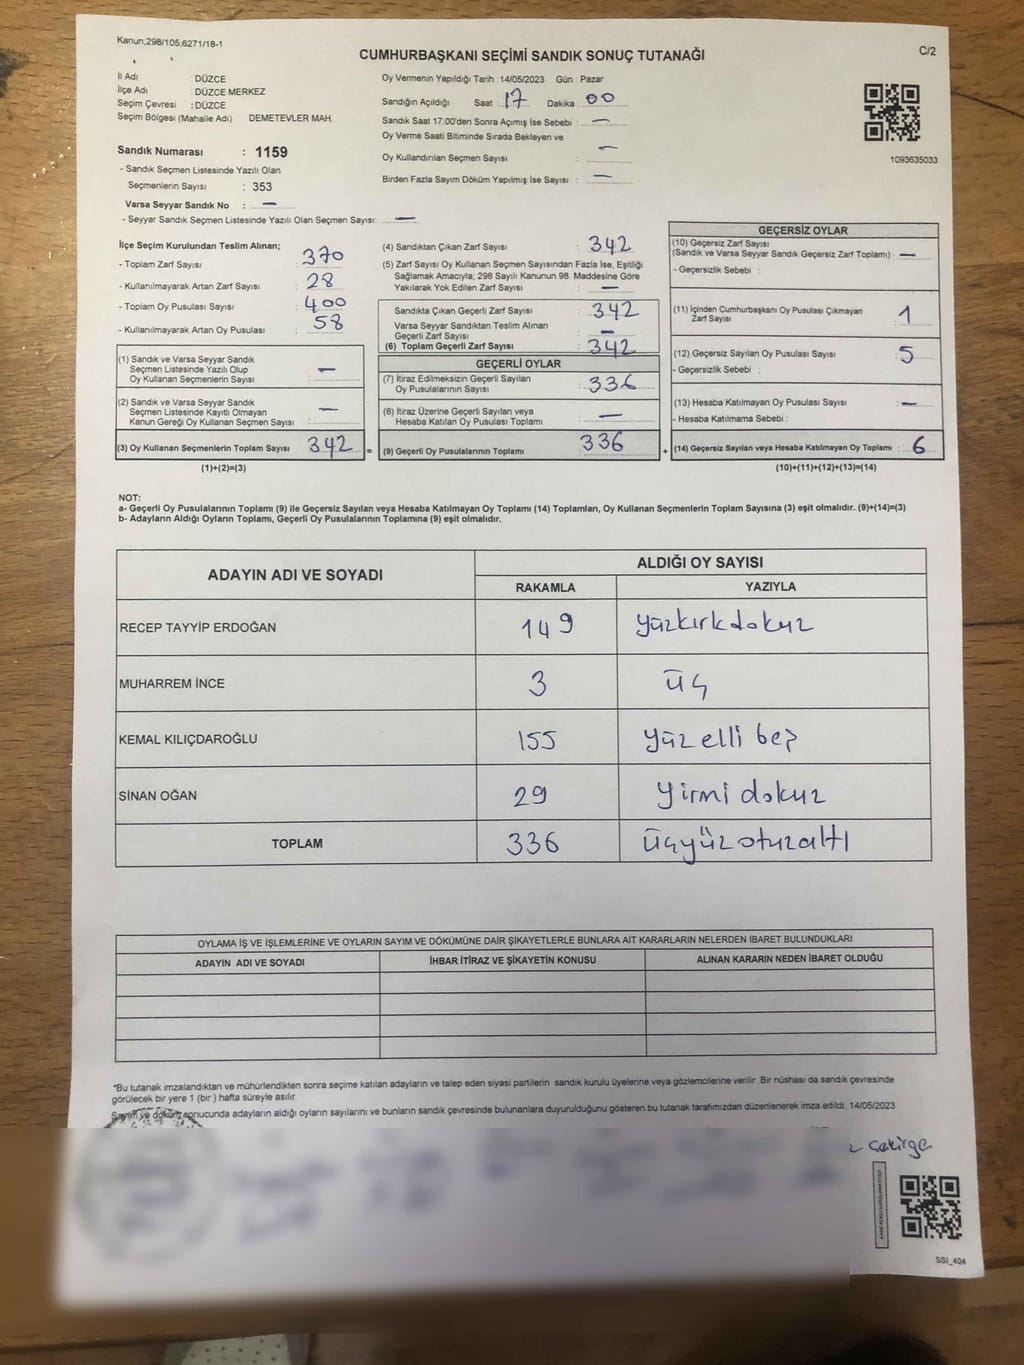 Kanun;298/105;6271/18-1
C/2
CUMHURBAŞKANI SEÇİMİ SANDIK SONUÇ TUTANAĞI
İl Adı : DÜZCE
İlçe Adı : DÜZCE MERKEZ
Seçim Çevresi : DÜZCE
Seçim Bölgesi (Mahalle Adı) : DEMETEVLER MAH.
Oy Vermenin Yapıldığı Tarih : 14/05/2023 Gün : Pazar
Sandığın Açıldığı Saat 17 Dakika 00
Sandık Saat 17:00'den Sonra Açımış İse Sebebi : —
Oy Verme Saati Bitiminde Sırada Bekleyen ve
Oy Kullandırılan Seçmen Sayısı : —
Birden Fazla Sayım Döküm Yapılmış İse Sayısı : —
1093635033
Sandık Numarası : 1159
- Sandık Seçmen Listesinde Yazılı Olan
Seçmenlerin Sayısı : 353
Varsa Seyyar Sandık No : —
- Seyyar Sandık Seçmen Listesinde Yazılı Olan Seçmen Sayısı: —
İlçe Seçim Kurulundan Teslim Alınan;
- Toplam Zarf Sayısı : 370
- Kullanılmayarak Artan Zarf Sayısı : 28
- Toplam Oy Pusulası Sayısı : 400
- Kullanılmayarak Artan Oy Pusulası : 58
(1) Sandık ve Varsa Seyyar Sandık
Seçmen Listesinde Yazılı Olup
Oy Kullanan Seçmenlerin Sayısı : —
(2) Sandık ve Varsa Seyyar Sandık
Seçmen Listesinde Kayıtlı Olmayan
Kanun Gereği Oy Kullanan Seçmen Sayısı : —
(3) Oy Kullanan Seçmenlerin Toplam Sayısı : 342 =
(1)+(2)=(3)
(4) Sandıktan Çıkan Zarf Sayısı : 342
(5) Zarf Sayısı Oy Kullanan Seçmen Sayısından Fazla İse, Eşitliği
Sağlamak Amacıyla; 298 Sayılı Kanunun 98. Maddesine Göre
Yakılarak Yok Edilen Zarf Sayısı : —
Sandıkta Çıkan Geçerli Zarf Sayısı : 342
Varsa Seyyar Sandıktan Teslim Alınan
Geçerli Zarf Sayısı : —
(6) Toplam Geçerli Zarf Sayısı : 342
GEÇERLİ OYLAR
(7) İtiraz Edilmeksizin Geçerli Sayılan
Oy Pusulalarının Sayısı : 336
(8) İtiraz Üzerine Geçerli Sayılan veya
Hesaba Katılan Oy Pusulası Toplamı : —
(9) Geçerli Oy Pusulalarının Toplamı : 336 +
GEÇERSİZ OYLAR
(10) Geçersiz Zarf Sayısı
(Sandık ve Varsa Seyyar Sandık Geçersiz Zarf Toplamı) : —
- Geçersizlik Sebebi :
(11) İçinden Cumhurbaşkanı Oy Pusulası Çıkmayan
Zarf Sayısı : 1
(12) Geçersiz Sayılan Oy Pusulası Sayısı : 5
- Geçersizlik Sebebi :
(13) Hesaba Katılmayan Oy Pusulası Sayısı : —
- Hesaba Katılmama Sebebi :
(14) Geçersiz Sayılan veya Hesaba Katılmayan Oy Toplamı : 6
(10)+(11)+(12)+(13)=(14)
NOT:
a- Geçerli Oy Pusulalarının Toplamı (9) ile Geçersiz Sayılan veya Hesaba Katılmayan Oy Toplamı (14) Toplamları, Oy Kullanan Seçmenlerin Toplam Sayısına (3) eşit olmalıdır. (9)+(14)=(3)
b- Adayların Aldığı Oyların Toplamı, Geçerli Oy Pusulalarının Toplamına (9) eşit olmalıdır.
ADAYIN ADI VE SOYADI ALDIĞI OY SAYISI
RAKAMLA YAZIYLA
RECEP TAYYİP ERDOĞAN 149 yüzkırkdokuz
MUHARREM İNCE 3 üç
KEMAL KILIÇDAROĞLU 155 yüz elli beş
SİNAN OĞAN 29 yirmi dokuz
TOPLAM 336 üçyüzotuzaltı
OYLAMA İŞ VE İŞLEMLERİNE VE OYLARIN SAYIM VE DÖKÜMÜNE DAİR ŞİKAYETLERLE BUNLARA AİT KARARLARIN NELERDEN İBARET BULUNDUKLARI
ADAYIN ADI VE SOYADI İHBAR İTİRAZ VE ŞİKAYETİN KONUSU ALINAN KARARIN NEDEN İBARET OLDUĞU
*Bu tutanak imzalandıktan ve mühürlendikten sonra seçime katılan adayların ve talep eden siyasi partilerin sandık kurulu üyelerine veya gözlemcilerine verilir. Bir nüshası da sandık çevresinde
görülecek bir yere 1 (bir ) hafta süreyle asılır.
Sayım ve döküm sonucunda adayların aldığı oyların sayılarını ve bunların sandık çevresinde bulunanlara duyurulduğunu gösteren bu tutanak tarafımızdan düzenlenerek imza edildi. 14/05/2023
SSI_404